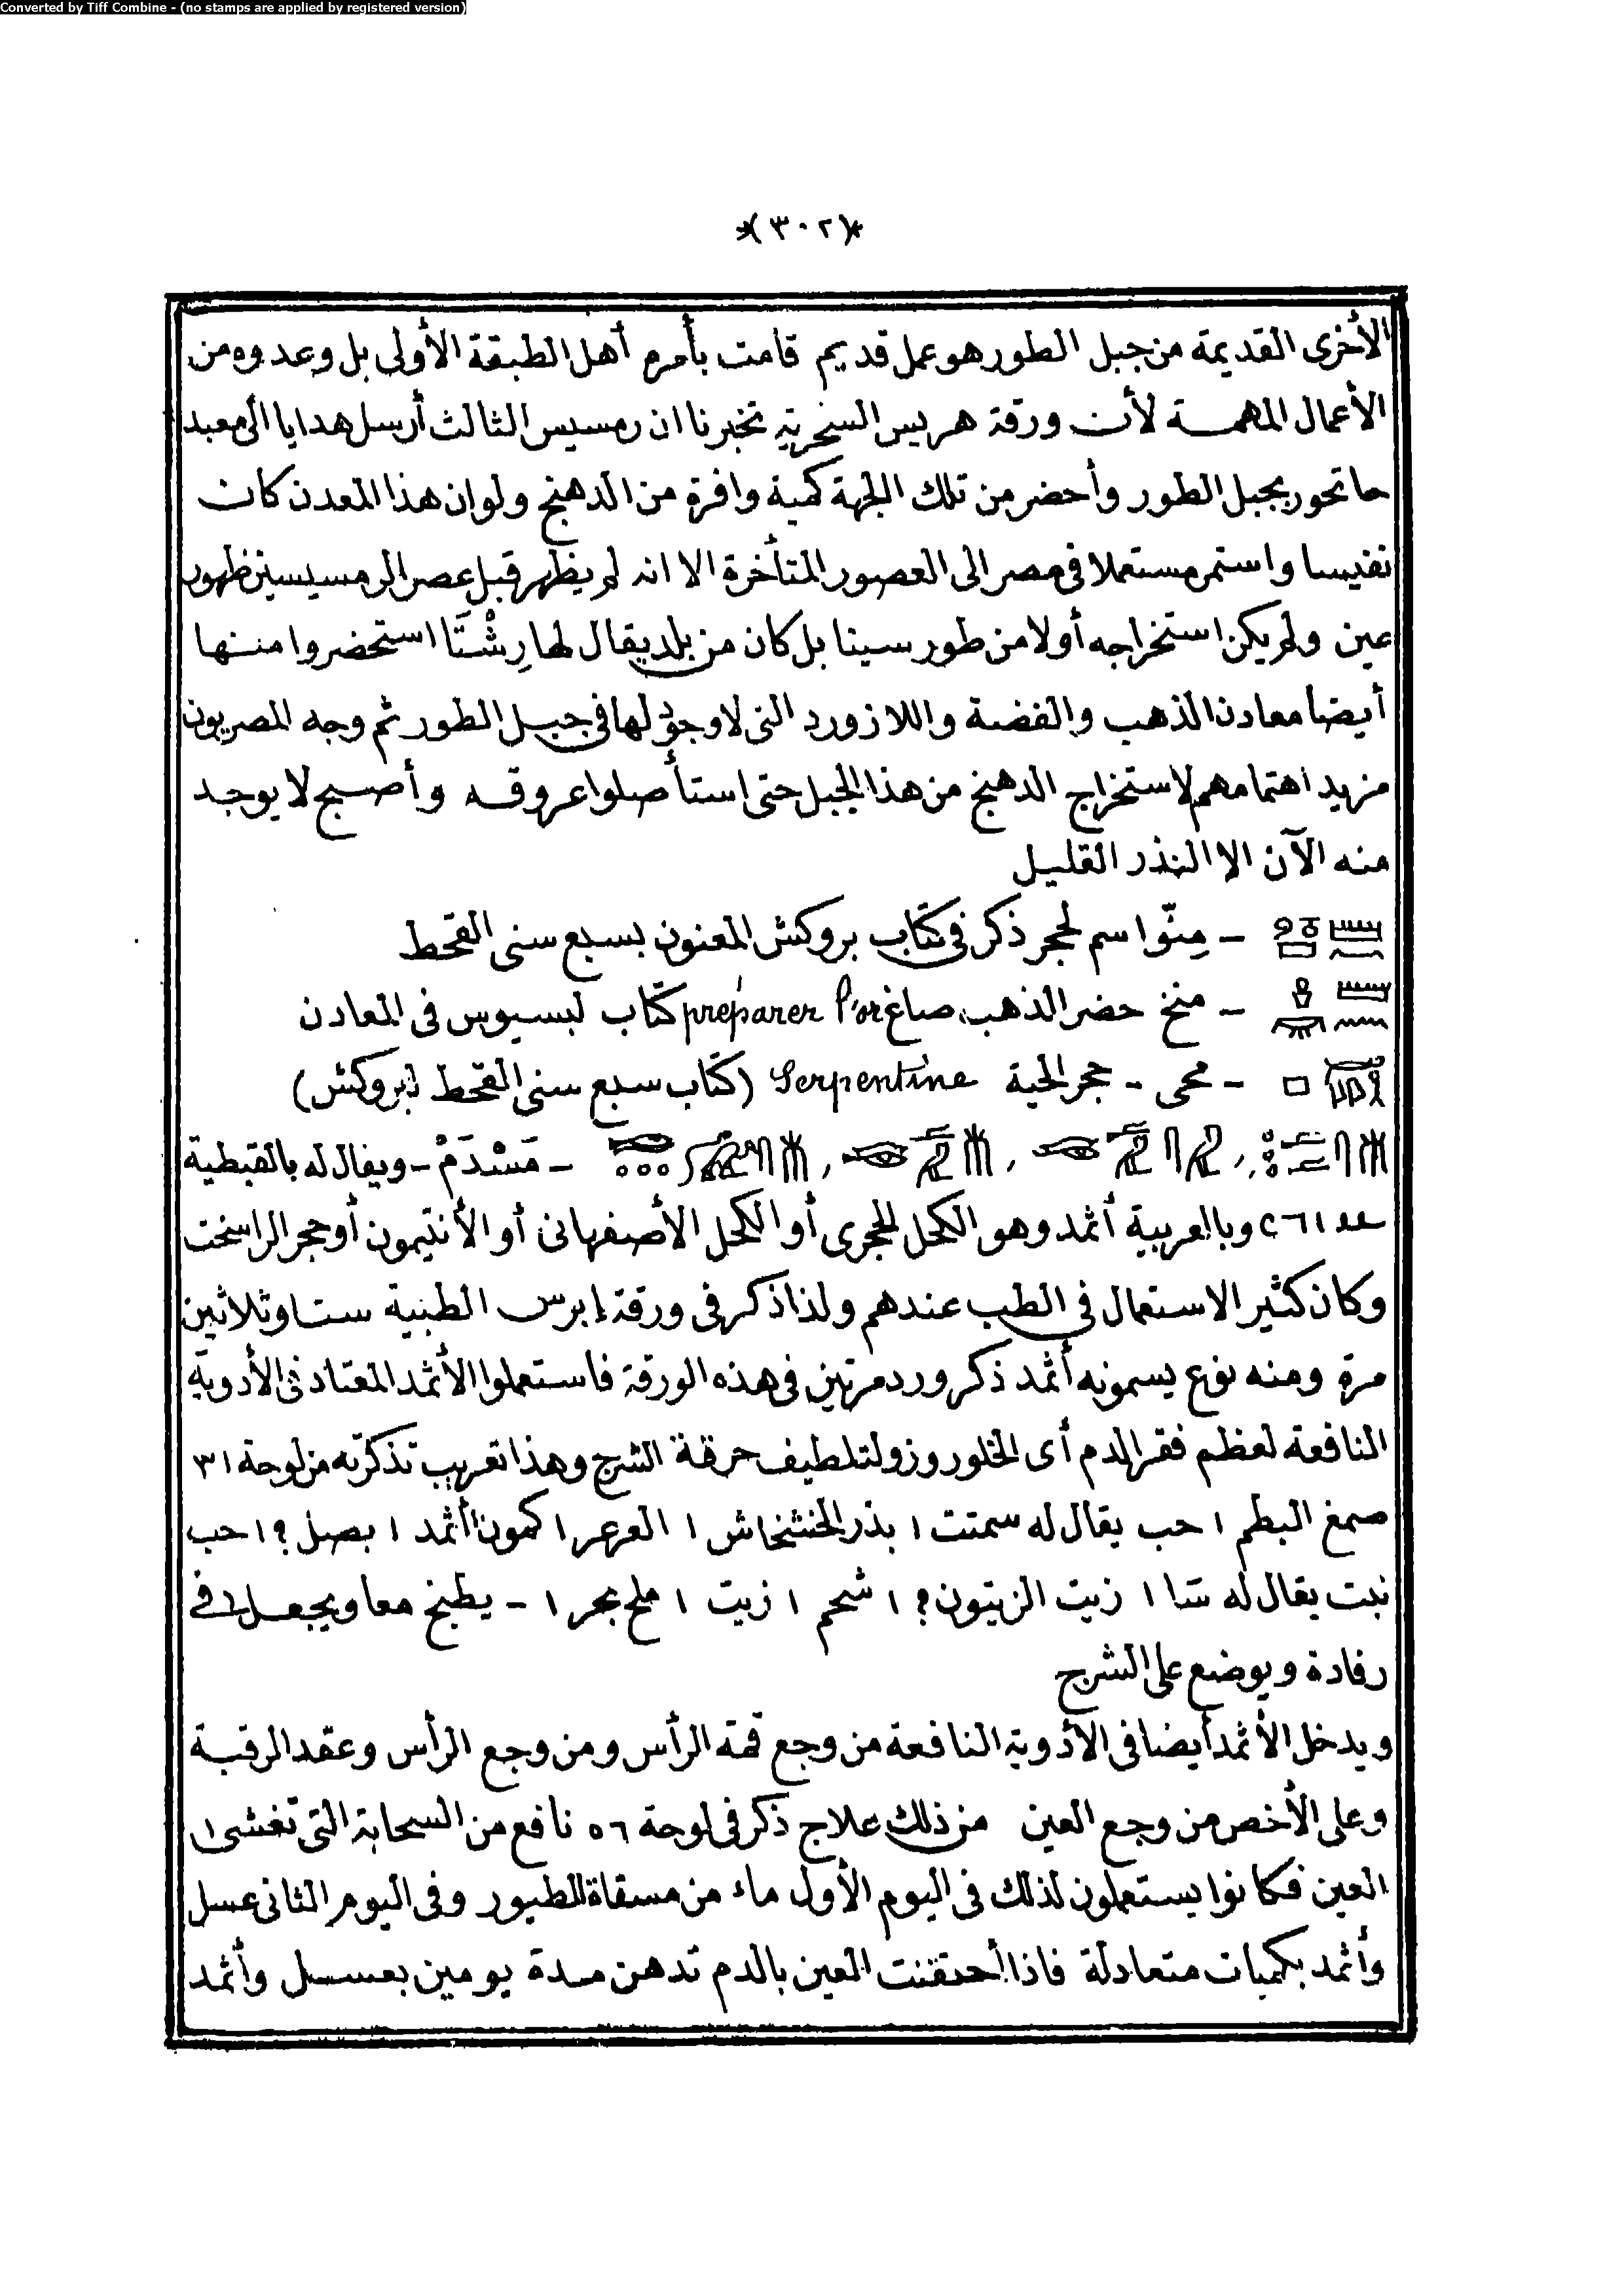 Converted by Tiff Combine - (no stamps are applied by registered version)
*(٣٠٢)*
الأخرى القديمة من جبل الطور هو عمل قديم قامت بأمره أهل الطبقة الأولى بل وعدوه من
الأعمال المهمة لأن ورقة هريس السخرية تخبرنا ان رمسيس الثالث أرسل هدايا الى معبد
حاتحور بجبل الطور وأحضر من تلك الجهة كمية وافرة من الدهنج ولو ان هذا المعدن كان
نفيسا واستمر مستعملا في مصر الى العصور المتأخرة الا انه لم يظهر قبل عصر الرمسيسين ظهور
عين ولم يكن استخراجه أولا من طور سينا بل كان من بلد يقال لها رِشْتَا استحضروا منها
أيضا معادن الذهب والفضة واللازورد التي لا وجود لها في جبل الطور ثم وجه المصريون
مزيد اهتمامهم لاستخراج الدهنج من هذا الجبل حتى استأصلوا عروقه وأصبح لا يوجد
منه الآن الا النذر القليل
– مِنّوا اسم لحجر ذكر في كتاب بروكش المعنون بسبع سنى القحط
– منخ حضر الذهب، صاغ préparer l'or كتاب لبسيوس فى المعادن
– محى - حجر الحية Serpentine (كتاب سبع سنى القحط لبروكش)
– مَسْدَمْ – ويقال له بالقبطية
وبالعربية أثمد وهو الكحل الحجرى أو الكحل الأصفهانى أو الأنتيمون أو حجر الراسخت
وكان كثير الاستعمال في الطب عندهم ولذا ذكر فى ورقة إبرس الطبية ستا وثلاثين
مرة ومنه نوع يسمونه أثمد ذكر ورد مرتين فى هذه الورقة فاستعملوا الأثمد المعتاد فى الأدوية
النافعة لعظم فقر الدم أى الخلوروز ولتلطيف حرقة الشرج وهذا تعريب تذكرته من لوحة ٣١
صمغ البطم ١ حب يقال له سمتت ١ بذر الخشخاش ١ العرعر ١ كمون ١ أثمد ١ بصل ؟ ١ حب
نبت يقال له شا ١ زيت الزيتون ؟ ١ شحم ١ زيت ١ ملح بحر ١ – يطبخ معا ويجعل فى
رفادة ويوضع على الشرج
ويدخل الأثمد أيضا فى الأدوية النافعة من وجع قمة الرأس ومن وجع الرأس وعقد الرقبة
وعلى الأخص من وجع العين من ذلك علاج ذكر فى لوحة ٥٦ نافع من السحابة التى تغشى
العين فكانوا يستعملون لذلك فى اليوم الأول ماء من مسقاة الطيور وفى اليوم الثانى عسل
وأثمد بكميات متعادلة فاذا أحتقنت العين بالدم تدهن مدة يومين بعسل وأثمد